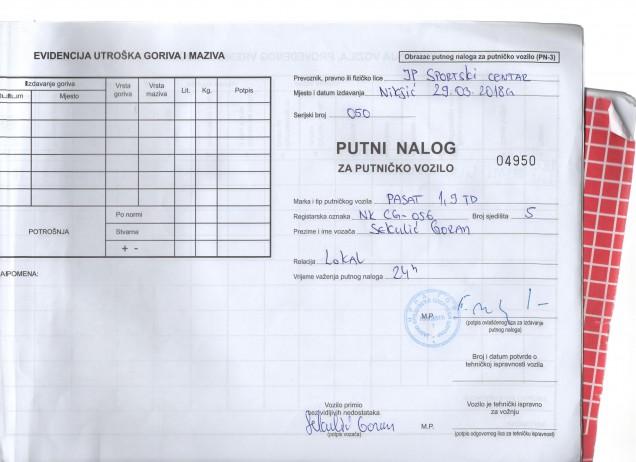 EVIDENCIJA UTROŠKA GORIVA I MAZIVA
Izdavanje goriva
Mjesto
Vrsta goriva
Vrsta maziva
Lit.
Kg.
Potpis
POTROŠNJA
Po normi
Stvarna
+ -
Obrazac putnog naloga za putničko vozilo (PN-3)
Prevoznik, pravno ili fizičko lice JP SPORTSKI CENTAR
Mjesto i datum izdavanja Nikšić 29.03.2018G
Serijski broj 050
PUTNI NALOG
ZA PUTNIČKO VOZILO
04950
Marka i tip putničkog vozila PASAT 1,9 TD
Registarska oznaka NK CG-056 Broj sjedišta 5
Prezime i ime vozača Sekulić Goran
Relacija LOKAL
Vrijeme važenja putnog naloga 24h
M.P.
(potpis ovlašćenog lica za izdavanje
putnog naloga)
Broj i datum potvrde o
tehničkoj ispravnosti vozila
Vozilo primio
bez vidljivih nedostataka
Sekulić Goran
(potpis vozača)
M.P.
Vozilo je tehnički ispravno
za vožnju
(potpis odgovornog lica za tehničku ispravnost)